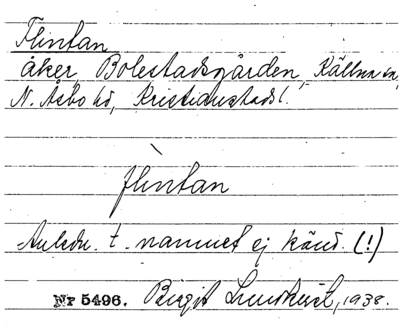 Flintan
åker, Bolestadsgården, Källna sn,
N. Åsbo hd, Kristianstads l.
flintan
Anledn. t. namnet ej känd. (!)
Nr 5496. Birgit Lundkvist, 1938.